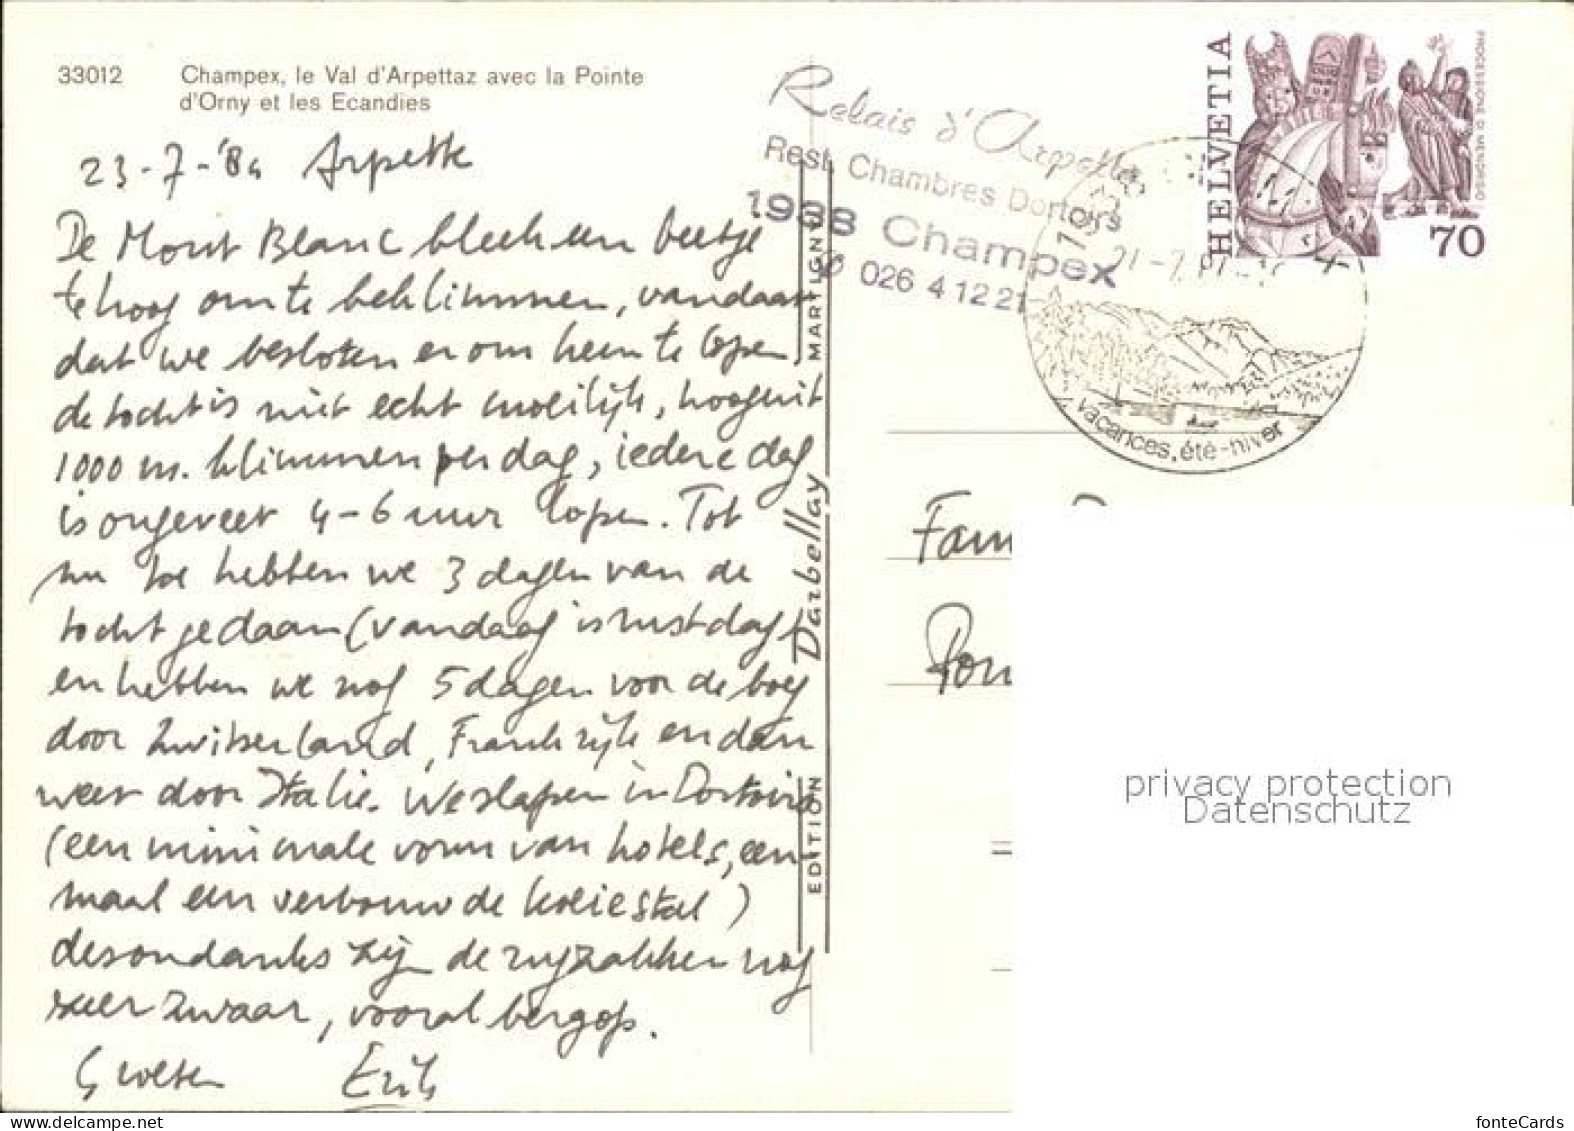 33012 Champex, le Val d'Arpettaz avec la Pointe
d'Orny et les Ecandies
23-7-'84 Arpette
De Mont Blanc bleek een beetje
te hoog om te beklimmen, vandaar
dat we besloten er om heen te lopen,
de tocht is niet echt moeilijk, hooguit
1000 m. klimmen per dag, iedere dag
is ongeveer 4-6 uur lopen. Tot
nu toe hebben we 3 dagen van de
tocht gedaan (vandaag is rustdag)
en hebben we nog 5 dagen voor de boeg
door Zwitserland, Frankrijk en dan
weer door Italie. We slapen in Dortoirs
(een minimale vorm van hotels, een
maal een verbouwde koeiestal)
desondanks zijn de rugzakken nog
zeer zwaar, vooral bergop.
Groeten Erik
EDITION Darbellay MARTIGNY
Relais d'Arpette
Rest. Chambres Dortoirs
1938 Champex
026 4 12 21
HELVETIA
PROCESSIONE DI MENDRISIO
70
vacances, été-hiver
Fam
privacy protection
Datenschutz
www.delcampe.net
fonteCards